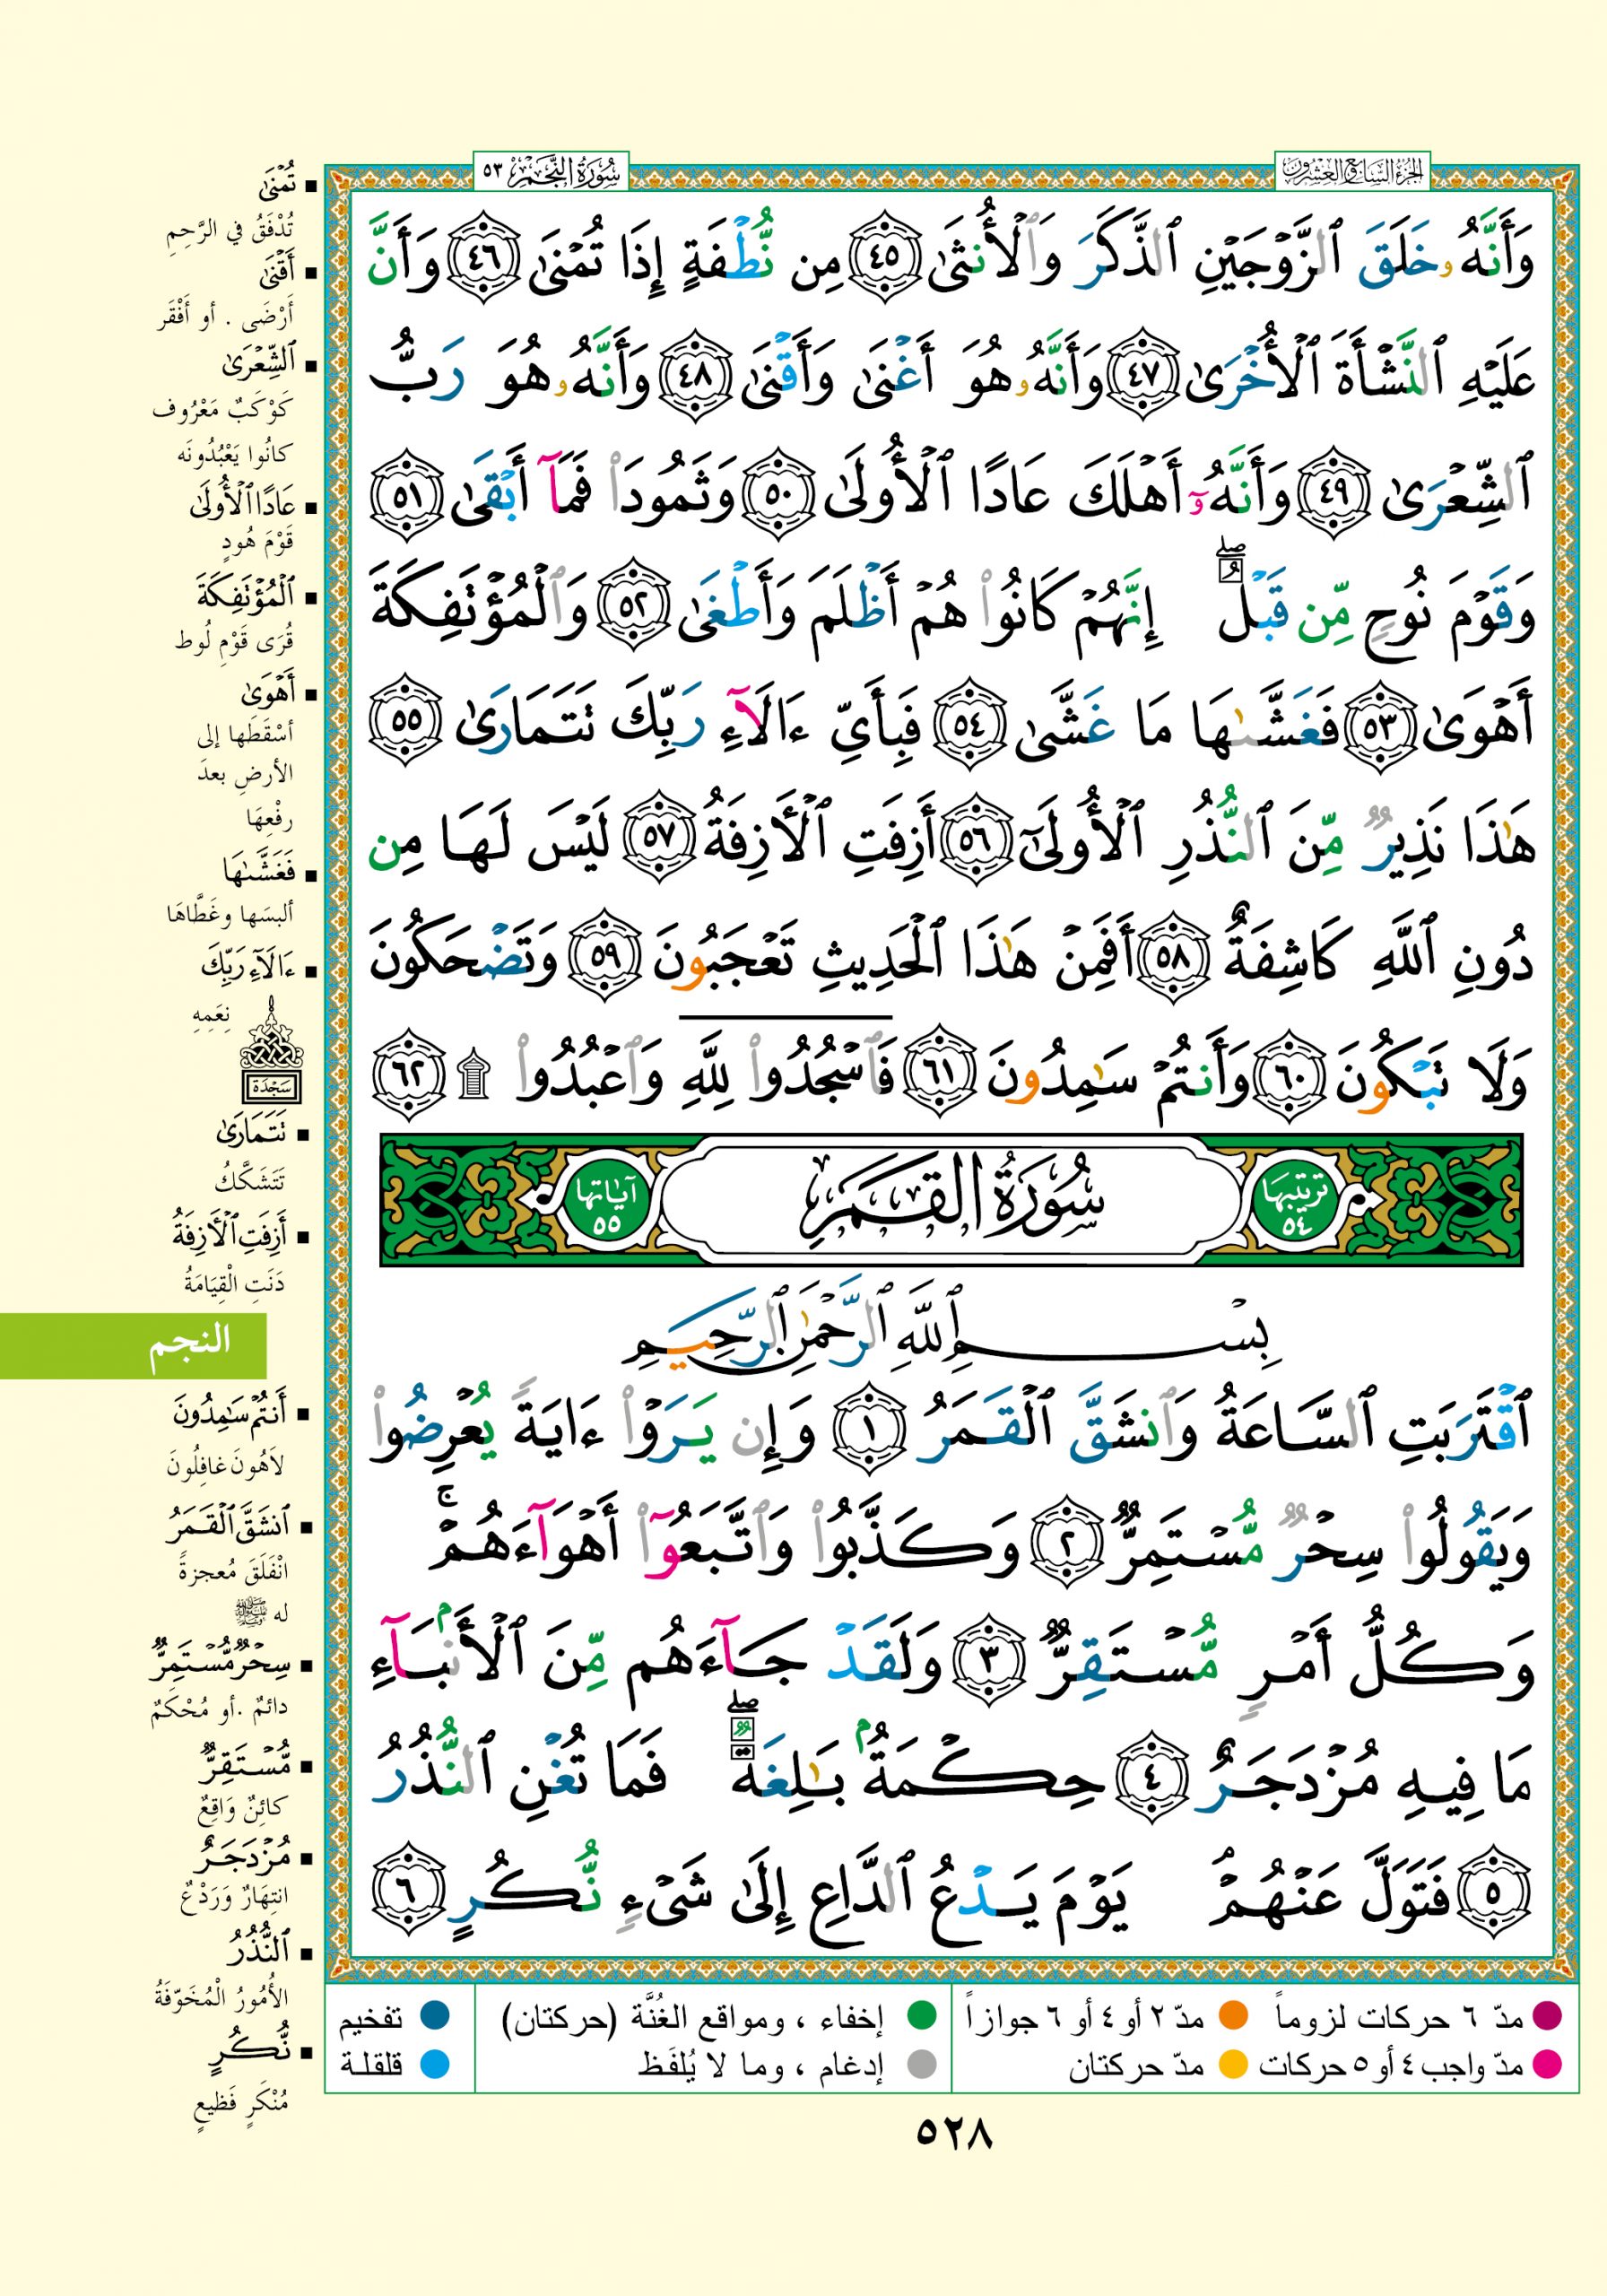 الجزء السابع والعشرون
سورة النجم ٥٣
وَأَنَّهُۥ خَلَقَ ٱلزَّوْجَيْنِ ٱلذَّكَرَ وَٱلْأُنثَىٰ ٤٥ مِن نُّطْفَةٍ إِذَا تُمْنَىٰ ٤٦ وَأَنَّ
عَلَيْهِ ٱلنَّشْأَةَ ٱلْأُخْرَىٰ ٤٧ وَأَنَّهُۥ هُوَ أَغْنَىٰ وَأَقْنَىٰ ٤٨ وَأَنَّهُۥ هُوَ رَبُّ
ٱلشِّعْرَىٰ ٤٩ وَأَنَّهُۥٓ أَهْلَكَ عَادًا ٱلْأُولَىٰ ٥٠ وَثَمُودَا۟ فَمَآ أَبْقَىٰ ٥١
وَقَوْمَ نُوحٍ مِّن قَبْلُ ۖ إِنَّهُمْ كَانُوا۟ هُمْ أَظْلَمَ وَأَطْغَىٰ ٥٢ وَٱلْمُؤْتَفِكَةَ
أَهْوَىٰ ٥٣ فَغَشَّىٰهَا مَا غَشَّىٰ ٥٤ فَبِأَىِّ ءَالَآءِ رَبِّكَ تَتَمَارَىٰ ٥٥
هَٰذَا نَذِيرٌ مِّنَ ٱلنُّذُرِ ٱلْأُولَىٰٓ ٥٦ أَزِفَتِ ٱلْـَٔازِفَةُ ٥٧ لَيْسَ لَهَا مِن
دُونِ ٱللَّهِ كَاشِفَةٌ ٥٨ أَفَمِنْ هَٰذَا ٱلْحَدِيثِ تَعْجَبُونَ ٥٩ وَتَضْحَكُونَ
وَلَا تَبْكُونَ ٦٠ وَأَنتُمْ سَٰمِدُونَ ٦١ فَٱسْجُدُوا۟ لِلَّهِ وَٱعْبُدُوا۟ ۩ ٦٢
ترتيبها ٥٤ سُورَةُ القَمَرِ آياتها ٥٥
بِسْمِ ٱللَّهِ ٱلرَّحْمَٰنِ ٱلرَّحِيمِ
ٱقْتَرَبَتِ ٱلسَّاعَةُ وَٱنشَقَّ ٱلْقَمَرُ ١ وَإِن يَرَوْا۟ ءَايَةً يُعْرِضُوا۟
وَيَقُولُوا۟ سِحْرٌ مُّسْتَمِرٌّ ٢ وَكَذَّبُوا۟ وَٱتَّبَعُوٓا۟ أَهْوَآءَهُمْ ۚ
وَكُلُّ أَمْرٍ مُّسْتَقِرٌّ ٣ وَلَقَدْ جَآءَهُم مِّنَ ٱلْأَنۢبَآءِ
مَا فِيهِ مُزْدَجَرٌ ٤ حِكْمَةٌۢ بَٰلِغَةٌ ۖ فَمَا تُغْنِ ٱلنُّذُرُ
٥ فَتَوَلَّ عَنْهُمْ ۘ يَوْمَ يَدْعُ ٱلدَّاعِ إِلَىٰ شَىْءٍ نُّكُرٍ ٦
تُمْنَىٰ
تُدْفَقُ في الرَّحِمِ
أَقْنَىٰ
أَرْضَى . أو أَفْقَر
ٱلشِّعْرَىٰ
كَوْكَبٌ مَعْرُوف
كانُوا يَعْبُدُونَه
عَادًا ٱلْأُولَىٰ
قَوْمَ هُودٍ
ٱلْمُؤْتَفِكَةَ
قُرَى قَوْمِ لُوط
أَهْوَىٰ
أسْقَطَها إلى
الأرضِ بعدَ
رفْعِهَا
فَغَشَّىٰهَا
ألبسَها وغَطَّاهَا
ءَالَآءِ رَبِّكَ
نِعَمِهِ
سَجْدَة
تَتَمَارَىٰ
تَتَشَكَّكُ
أَزِفَتِ ٱلْـَٔازِفَةُ
دَنَتِ الْقِيَامَةُ
النجم
أَنتُمْ سَٰمِدُونَ
لاَهُونَ غافِلُونَ
ٱنشَقَّ ٱلْقَمَرُ
انْفَلَقَ مُعجزةً
له ﷺ
سِحْرٌ مُّسْتَمِرٌّ
دائمٌ .أو مُحْكَمٌ
مُّسْتَقِرٌّ
كائِنٌ وَاقِعٌ
مُزْدَجَرٌ
انتِهَارٌ وَرَدْعٌ
ٱلنُّذُرُ
الأُمُورُ الْمُخَوِّفَةُ
نُّكُرٍ
مُنْكَرٍ فَظيعٍ
مدّ ٦ حركات لزوماً مدّ ٢ أو ٤ أو ٦ جوازاً إخفاء ، ومواقع الغُنَّة (حركتان) تفخيم
مدّ واجب ٤ أو ٥ حركات مدّ حركتان إدغام ، وما لا يُلفَظ قلقلة
٥٢٨